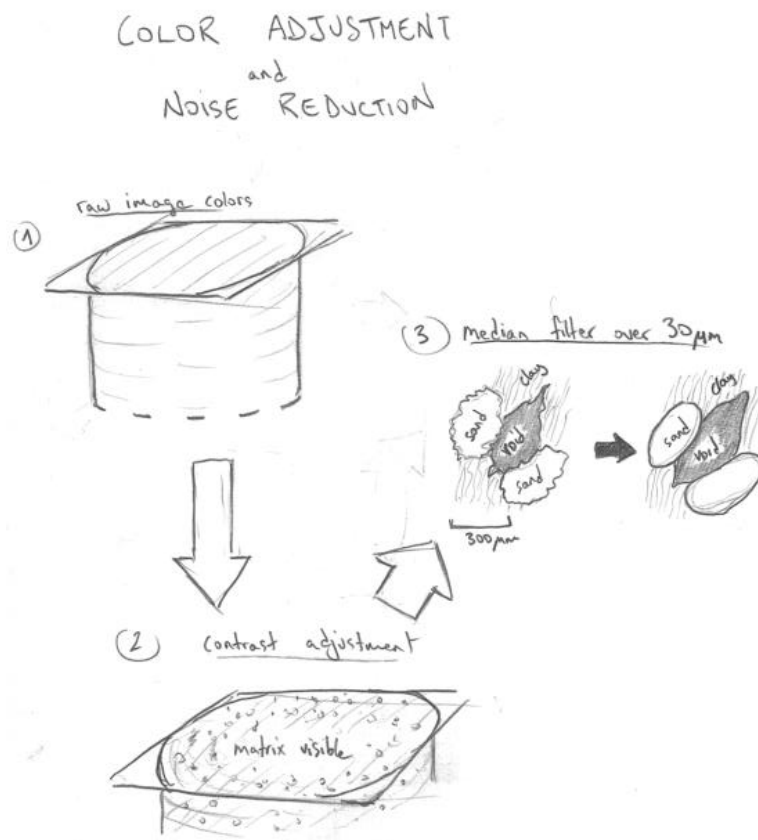 COLOR ADJUSTMENT
and
NOISE REDUCTION
raw image colors
1
3 median filter over 30 µm
clay
sand
void
sand
300 µm
clay
sand
void
2 contrast adjustment
matrix visible